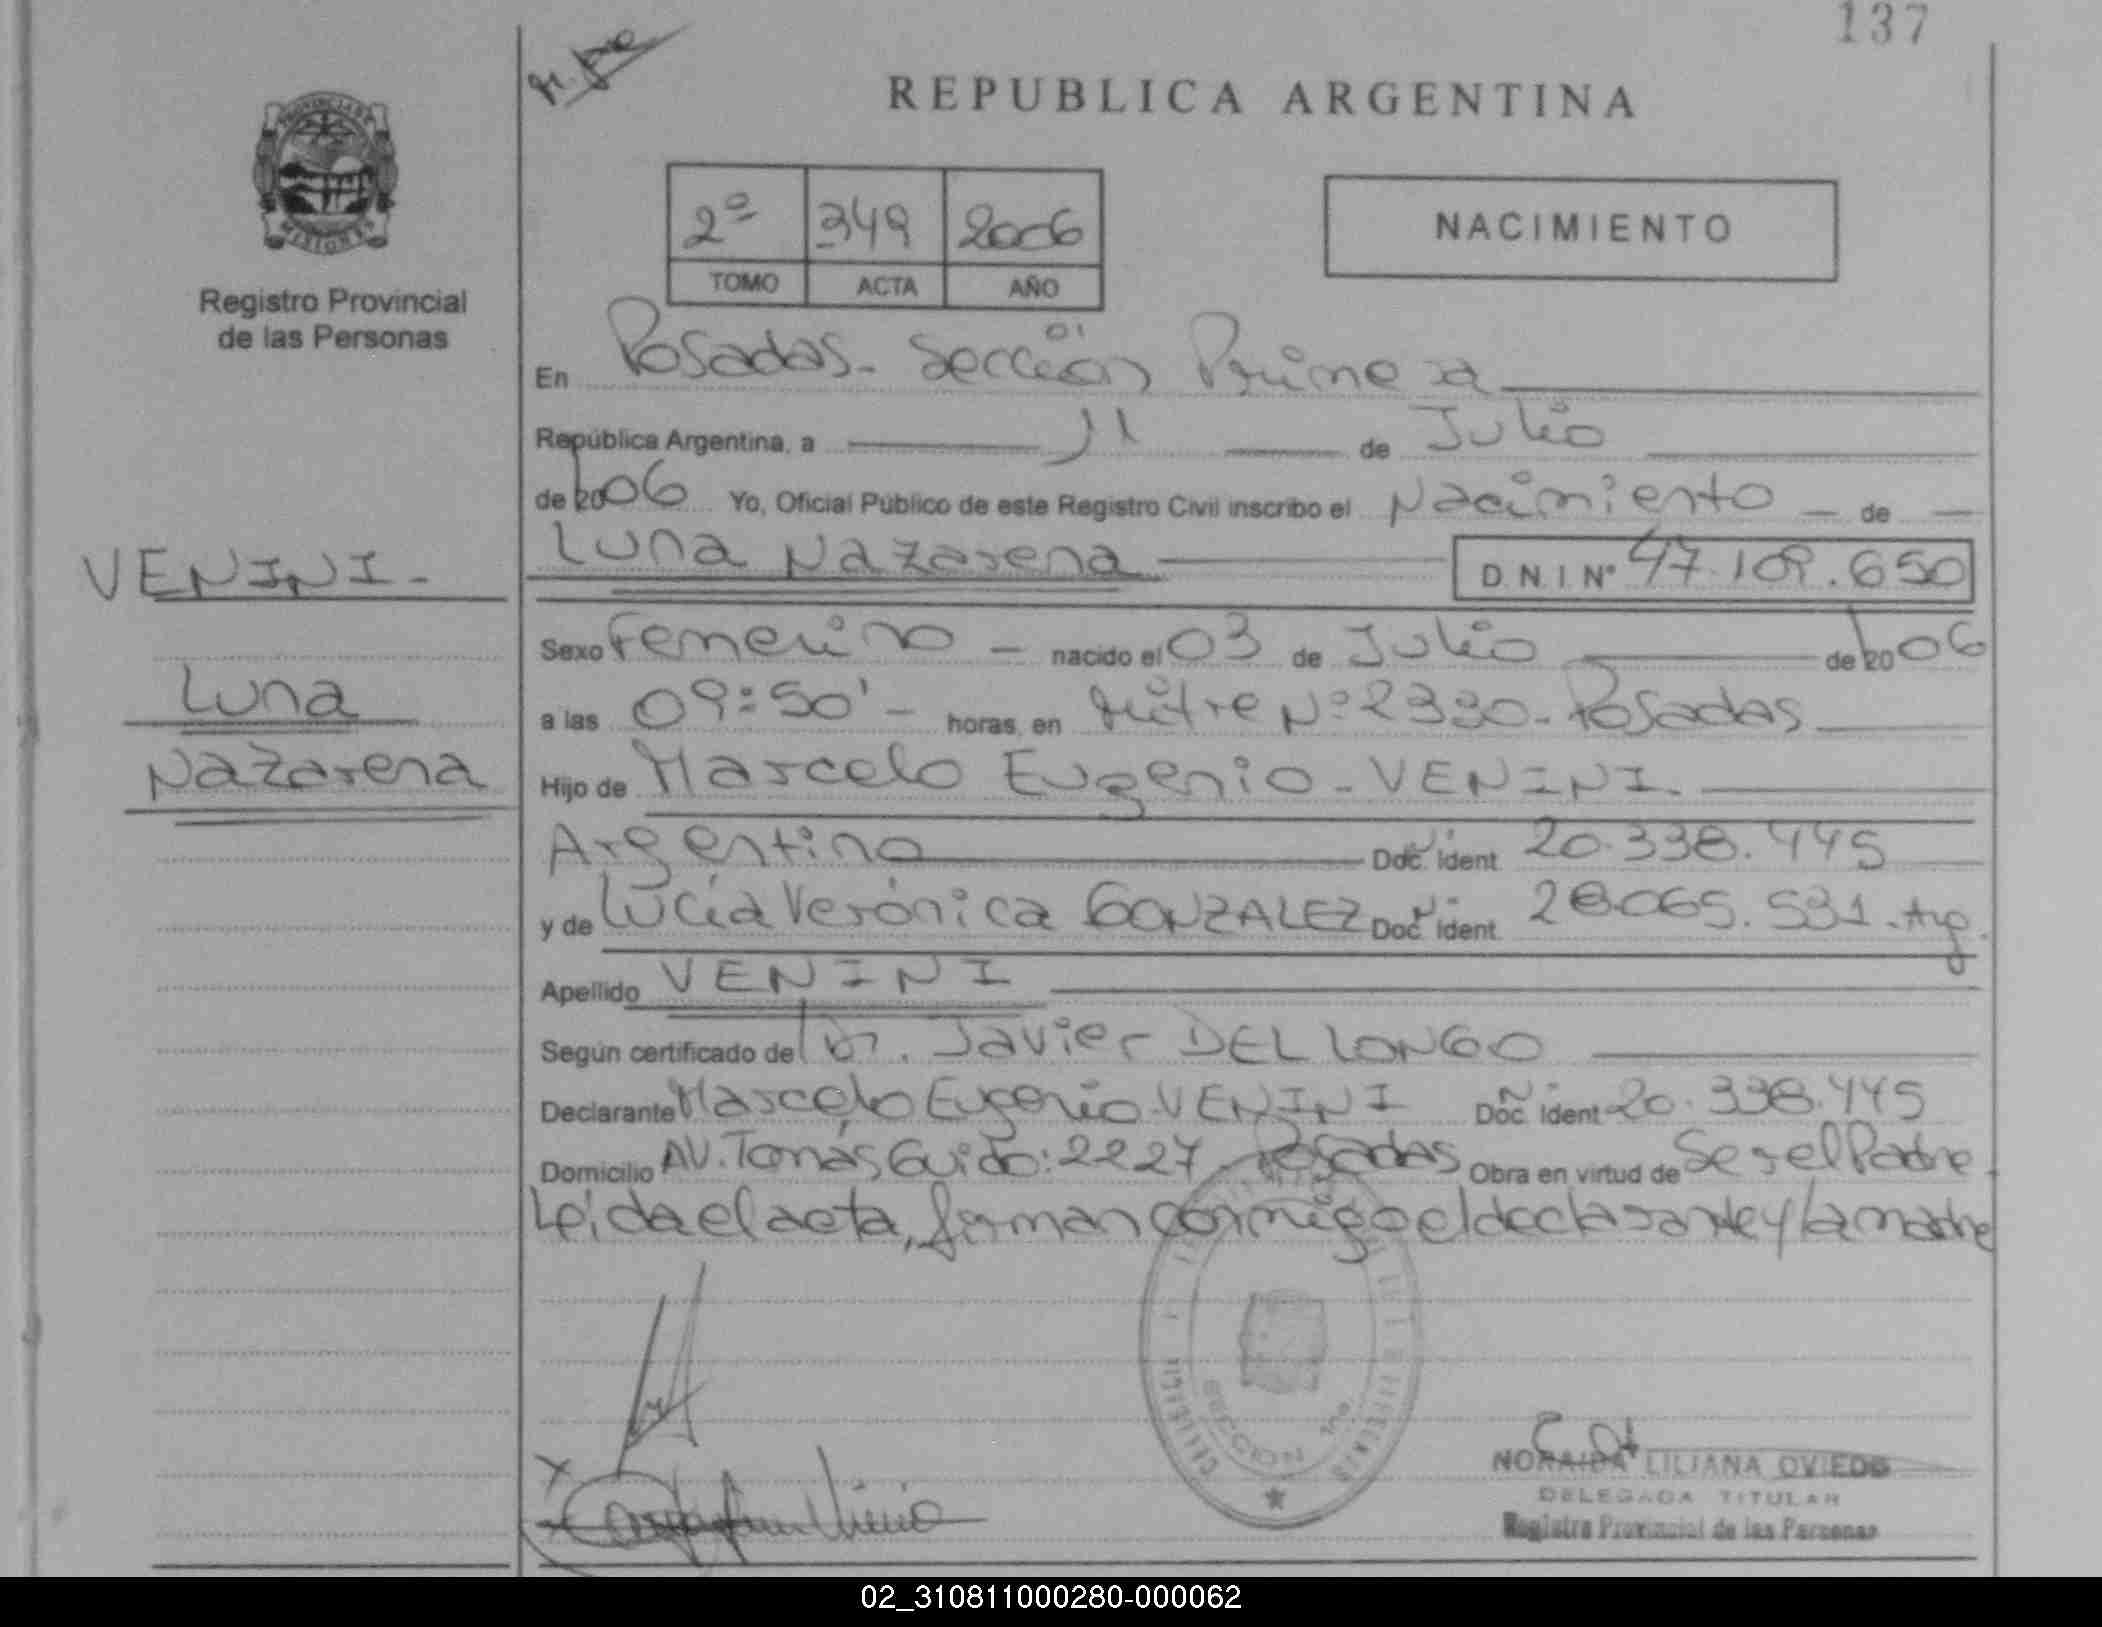 137
REPUBLICA ARGENTINA
PROVINCIA DE
MISIONES
Registro Provincial
de las Personas
2º 349 2006
TOMO ACTA AÑO
NACIMIENTO
En Posadas - Sección 01 Primera
República Argentina, a 11 de Julio
de 2006 Yo, Oficial Público de este Registro Civil inscribo el Nacimiento - de -
Luna Nazarena D.N.I. Nº 47.109.650
VENINI -
Luna
Nazarena
Sexo Femenino - nacido el 03 de Julio de 2006
a las 09:50' - horas, en Mitre Nº 2330 - Posadas
Hijo de Marcelo Eugenio - VENINI -
Argentino Doc. Ident. 20.338.445
y de Lucía Verónica GONZALEZ Doc. Ident. 28.065.531 - Arg.
Apellido VENINI
Según certificado de Dr. Javier DEL LONGO
Declarante Marcelo Eugenio - VENINI Doc. Ident 20.338.445
Domicilio AV. Tomás Guido: 2227 - Posadas Obra en virtud de Ser el Padre -
Leída el acta, firman conmigo el declarante y la madre
SECCION 1ra
NORAIDA LILIANA OVIEDO
DELEGADA TITULAR
Registro Provincial de las Personas
02_310811000280-000062